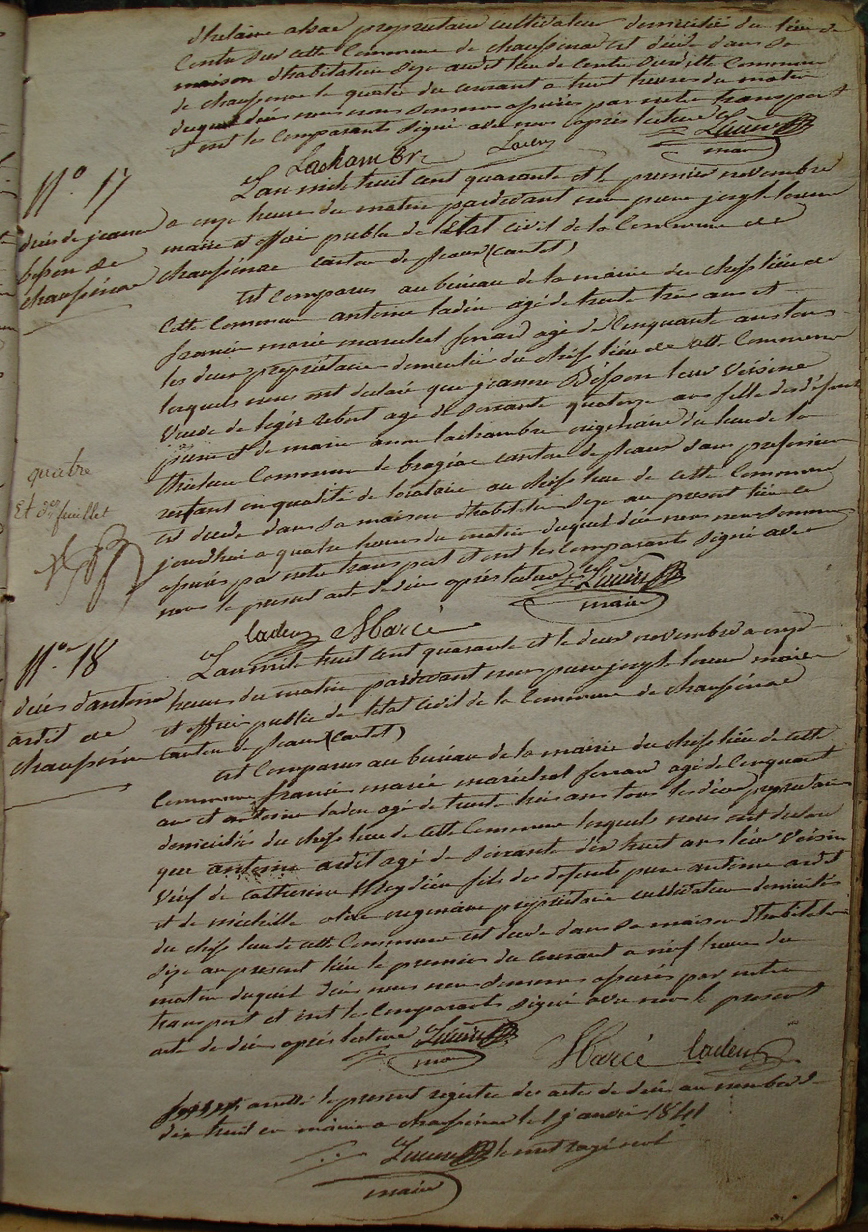 propriétaire cultivateur domicilié du lieu de
cette Commune de chaussenac est décédé dans sa
maison d'habitation size audit lieu de Commune
de chaussenac le quatre du courant a huit heures du matin
duquel décès nous nous sommes assurés par notre transport
et ont les Comparants signé avec nous après lecture
Lachambre Laden
maire
N.o 17
décès de jeanne
besson de
chaussenac
L'an mille huit cent quarante et le premier novembre
a onze heures du matin pardevant nous pierre joseph
maire et officier public de l'État civil de la Commune de
chaussenac canton de pleaux (cantal)
Est Comparus au bureau de la mairie du chef lieu de
cette Commune antoine laden agé de trente trois ans et
francois marcé marechal ferrand agé de Cinquante ans tous
les deux propriétaires domiciliés du chef lieu de cette Commune
lesquels nous ont déclaré que jeanne Besson leur Voisine
Veuve de legér agé de soixante quatorze ans fille des défunts
pierre et de marie anne lachambre originaire du lieu de la
Commune de brageac canton de pleaux sans profession
restant en qualité de locataire au chef lieu de cette Commune
est décédé dans sa maison d'habitation size au present lieu ce
jourd'hui a quatre heures du matin duquel décès nous nous sommes
assurés par notre transport et ont les Comparants signé avec
nous le present acte de décès après lecture
maire
laden Marcé
quatre
Et d.er feuillet
N.o 18
décès d'antoine
ardit de
chaussenac
L'an mille huit cent quarante et le deux novembre a onze
heures du matin pardevant nous pierre joseph maire
et officier public de l'etat civil de la Commune de chaussenac
canton de pleaux (cantal)
Est Comparus au bureau de la mairie du chef lieu de cette
Commune francois marcé marechal ferrand agé de Cinquante
ans et antoine laden agé de trente trois ans tous les deux propriétaires
domiciliés du chef lieu de cette Commune lesquels nous ont déclaré
que antoine ardit agé de soixante dix huit ans leur Voisin
Veuf de Catherine fils des défunts pierre antoine ardit
et de originaire propriétaire cultivateur domicilié
du chef lieu de cette Commune est décédé dans sa maison d'habitation
size au present lieu le premier du courant a neuf heures du
matin duquel décès nous nous sommes assurés par notre
transport et ont les Comparants signé avec nous le present
acte de décès après lecture
maire
Marcé laden
arretté le present registre des actes de décès au nombre de
dix huit en mairie a chaussenac le 1 janvier 1841
maire